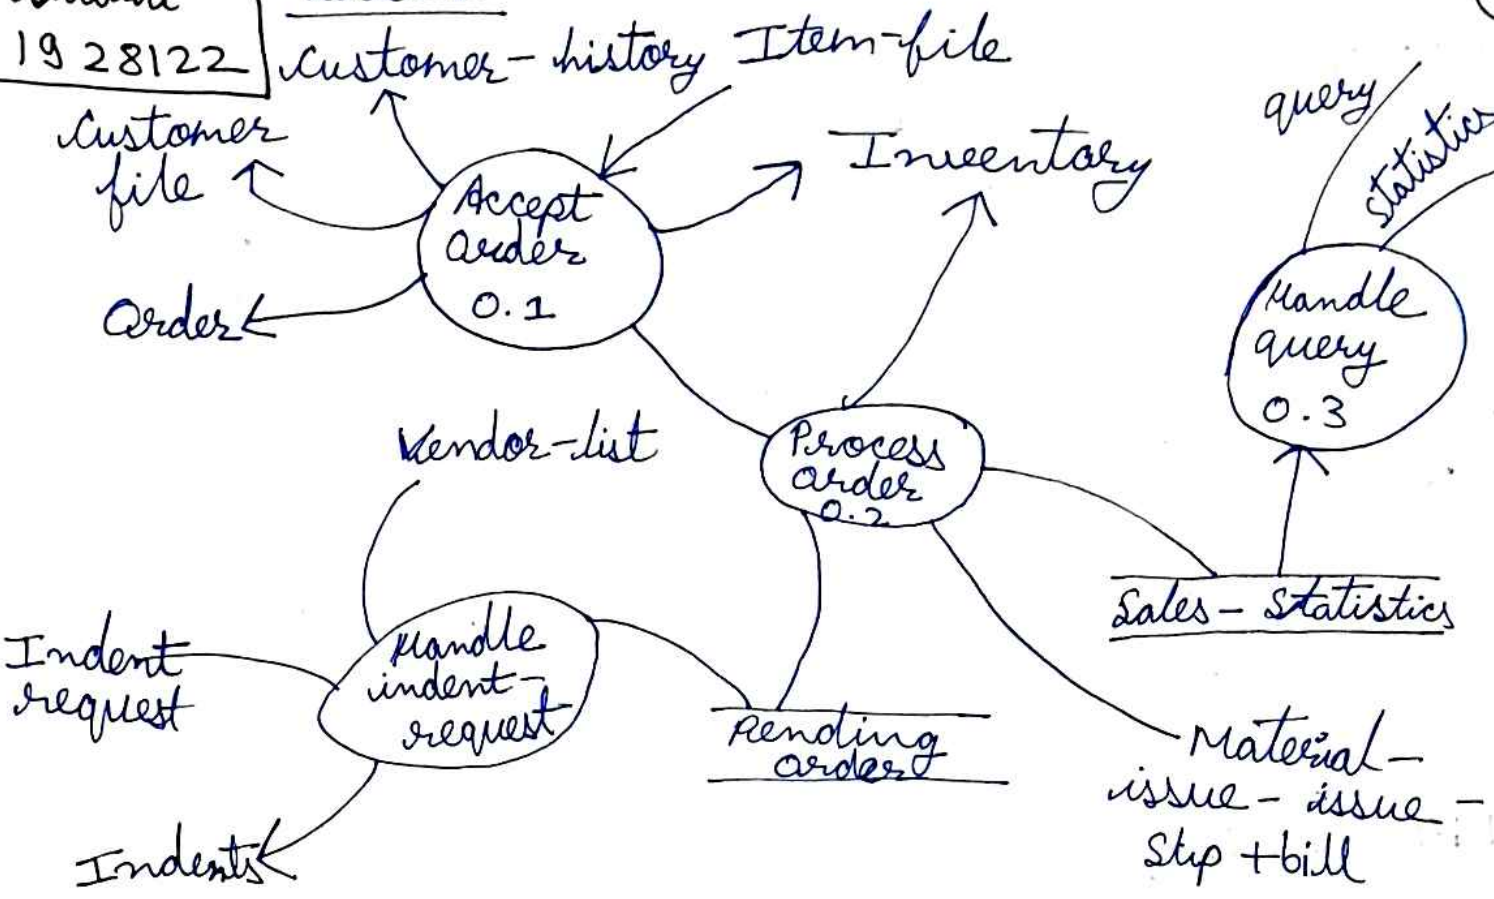 19 28122
Customer-history
Item-file
query
statistics
Customer
file
Inventory
Accept
order
0.1
Order
Handle
query
0.3
Vendor-list
Process
order
0.2
Sales-Statistics
Indent
request
Handle
indent-
request
Pending
order
Material-
issue-issue-
Slip+bill
Indents